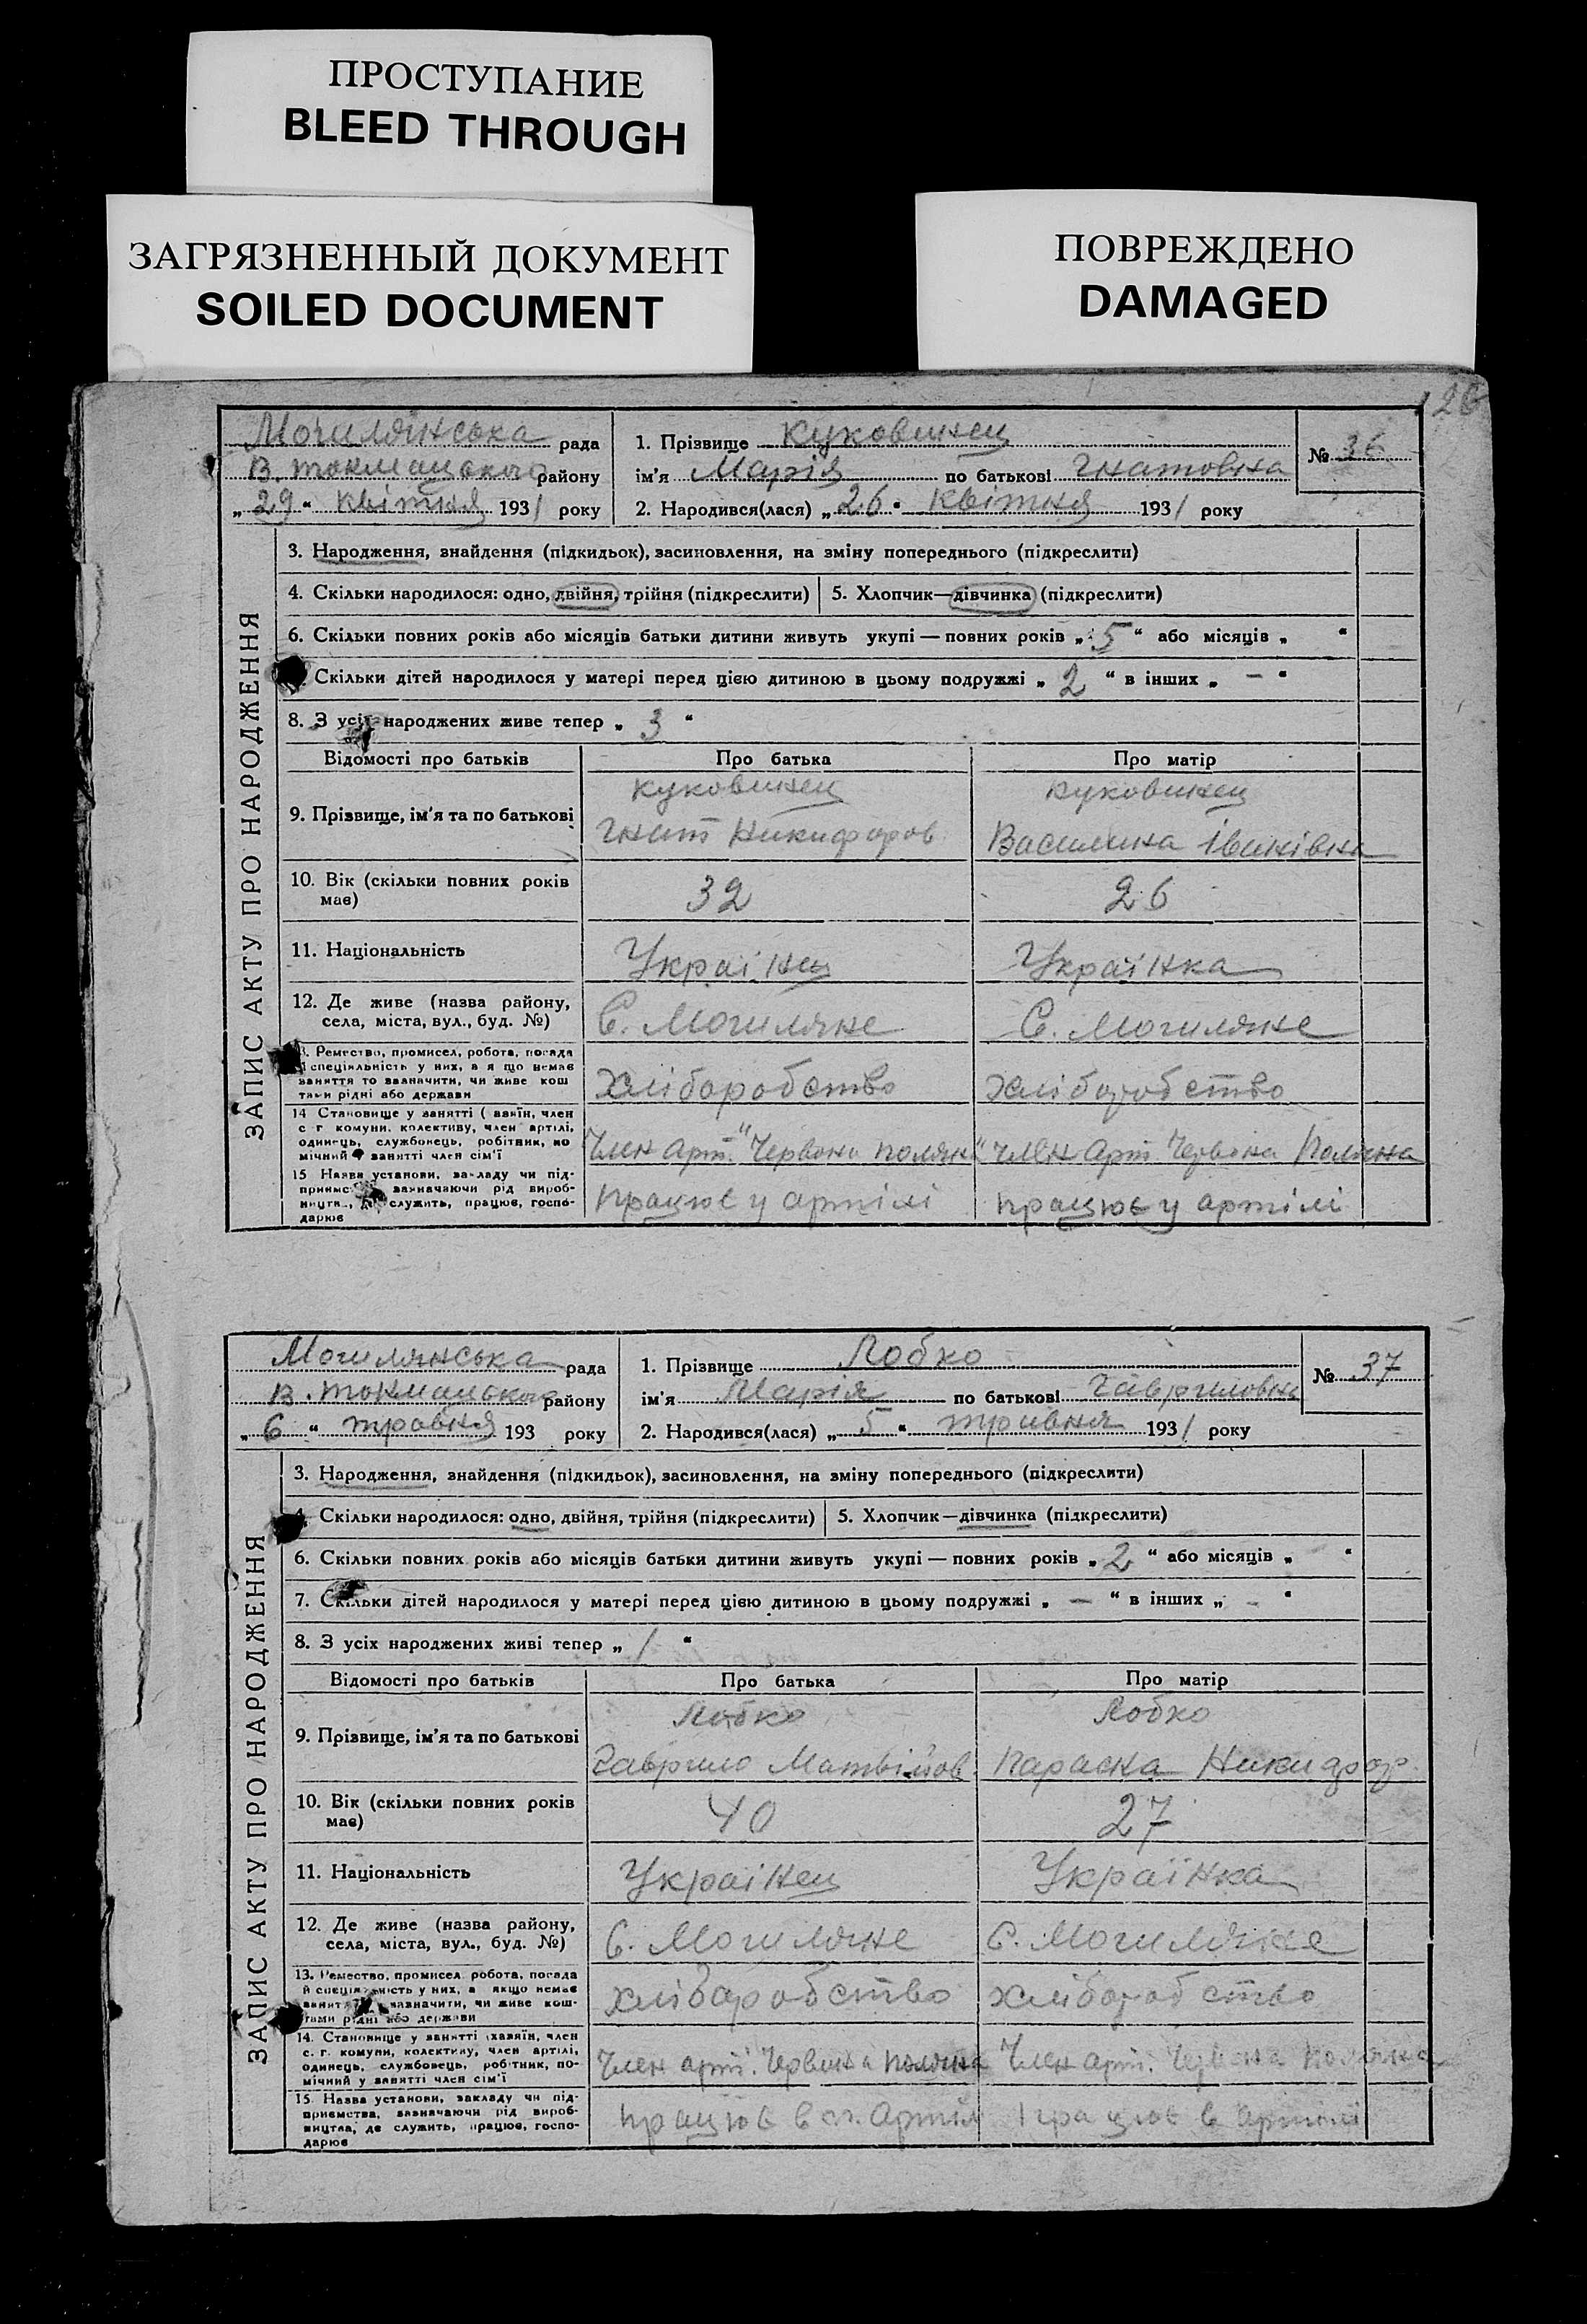 ПРОСТУПАНИЕ
BLEED THROUGH
ЗАГРЯЗНЕННЫЙ ДОКУМЕНТ
SOILED DOCUMENT
ПОВРЕЖДЕНО
DAMAGED
126
Могилянська рада
В. Токмацького району
„ 29 “ квітня 1931 року
1. Прізвище Куковинец
ім'я Марія по батькові Гнатовна
2. Народився(лася) „ 26 “ квітня 1931 року
№ 36
ЗАПИС АКТУ ПРО НАРОДЖЕННЯ
3. Народження, знайдення (підкидьок), засиновлення, на зміну попереднього (підкреслити)
4. Скільки народилося: одно, двійня, трійня (підкреслити) 5. Хлопчик—дівчинка (підкреслити)
6. Скільки повних років або місяців батьки дитини живуть укупі — повних років „ 5 “ або місяців „ “
Скільки дітей народилося у матері перед цією дитиною в цьому подружжі „ 2 “ в інших „ — “
8. З усіх народжених живе тепер „ 3 “
Відомості про батьків Про батька Про матір
9. Прізвище, ім'я та по батькові
Куковинец
Гнат Никифоров
Куковинец
Василина Іванівна
10. Вік (скільки повних років має) 32 26
11. Національність Українец Українка
12. Де живе (назва району,
села, міста, вул., буд. №) С. Могиляне С. Могиляне
3. Ремество, промисел, робота, посада
й спеціяльність у них, а я що немає
заняття то зазначити, чи живе кош
тами рідні або держави
Хліборобство Хліборобство
14 Становище у занятті ( азяїн, член
с г комуни, колективу, член артілі,
одинець, службовець, робітник, по
мічний у занятті член сім'ї
Член арт. "Червона поляна" Член арт. Червона Поляна
15 Назва установи, закладу чи під-
приємс зазначаючи рід вироб-
ництв, де служить, працює, госпо-
дарює
працює у артілі працює у артілі
Могилянська рада
В. Токмацького району
„ 6 “ травня 193 року
1. Прізвище Лобко
ім'я Марія по батькові Гавриловна
2. Народився(лася) „ 5 “ травня 1931 року
№ 37
ЗАПИС АКТУ ПРО НАРОДЖЕННЯ
3. Народження, знайдення (підкидьок), засиновлення, на зміну попереднього (підкреслити)
4. Скільки народилося: одно, двійня, трійня (підкреслити) 5. Хлопчик—дівчинка (підкреслити)
6. Скільки повних років або місяців батьки дитини живуть укупі — повних років „ 2 “ або місяців „ “
7. Скільки дітей народилося у матері перед цією дитиною в цьому подружжі „ — “ в інших „ — “
8. З усіх народжених живі тепер „ 1 “
Відомості про батьків Про батька Про матір
9. Прізвище, ім'я та по батькові
Лобко
Гаврило Матвійов.
Лобко
Параска Никифор.
10. Вік (скільки повних років має) 40 27
11. Національність Українец Українка
12. Де живе (назва району,
села, міста, вул., буд. №) С. Могиляне С. Могиляне
13. Ремество, промисел робота, посада
й спеціяльність у них, а якщо немає
заняття зазначити, чи живе кош-
тами рідні або держави
Хліборобство Хліборобство
14. Становище у занятті (хазяїн, член
с. г. комуни, колективу, член артілі,
одинець, службовець, робітник, по-
мічний у занятті член сім'ї
Член арт. Червона поляна Член арт. Червона поляна
15 Назва установи, закладу чи під-
приємства, зазначаючи рід вироб-
ництва, де служить, працює, госпо-
дарює
працює в артіл працює в артілі